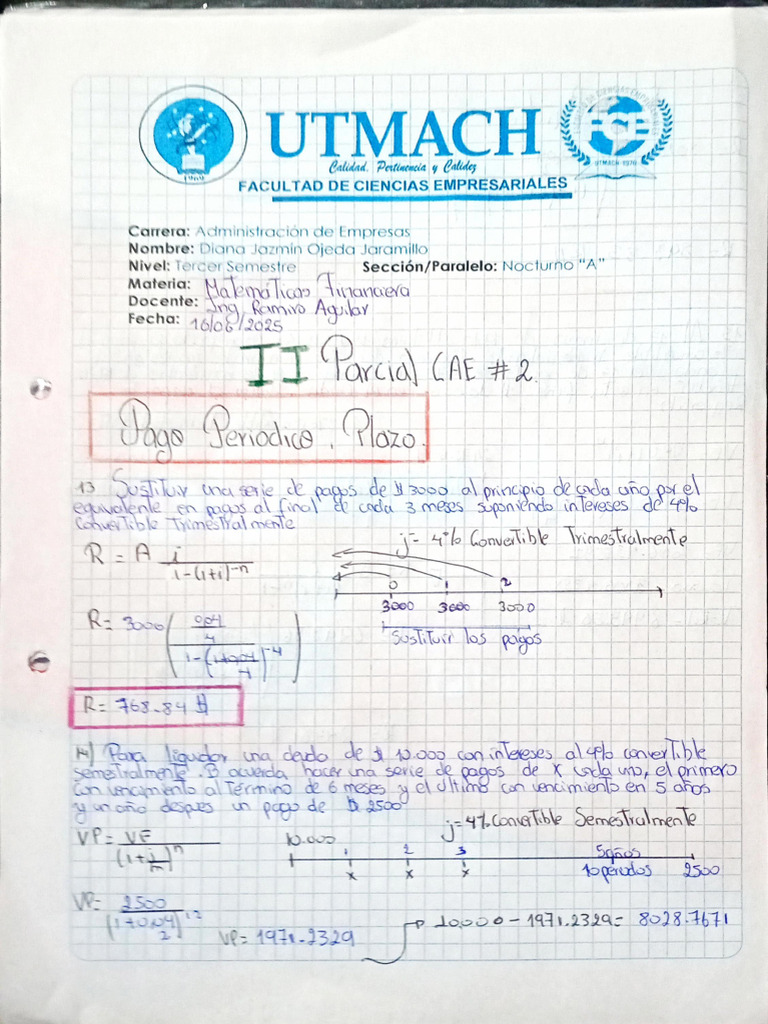 UTMACH
Calidad, Pertinencia y Calidez
FACULTAD DE CIENCIAS EMPRESARIALES
1969
UTMACH 1970
Carrera: Administración de Empresas
Nombre: Diana Jazmín Ojeda Jaramillo
Nivel: Tercer Semestre Sección/Paralelo: Nocturno "A"
Materia: Matemáticas Financiera
Docente: Ing Ramiro Aguilar
Fecha: 16/06/2025
II Parcial CAE #2.
Pago Periodico. Plazo.
13 Sustituir una serie de pagos de $ 3000 al principio de cada año por el
equivalente en pagos al final de cada 3 meses suponiendo intereses de 4%
Convertible Trimestralmente
j= 4% Convertible Trimestralmente
R = A i / 1-(1+i)^-n
0 1 2
3000 3000 3000
Sustituir los pagos
R= 3000 ( 0.04/4 / 1-(1+0.04/4)^-4 )
R= 768.84 $
14) Para liquidar una deuda de $ 10.000 con intereses al 4% convertible
semestralmente. B acuerda hacer una serie de pagos de X cada uno, el primero
con vencimiento al término de 6 meses y el último con vencimiento en 5 años
y un año despues un pago de $ 2500
j= 4% Convertible Semestralmente
VP= VF / (1+j/m)^n
10.000 1 2 3 5 años
x x x 10 périodos 2500
VP= 2500 / (1+0.04/2)^12
VP= 1971.2329
10.000 - 1971.2329= 8028.7671